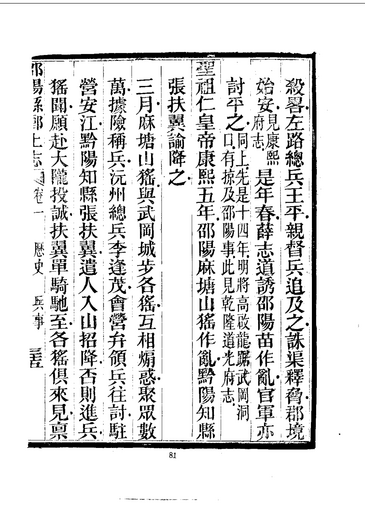 殺畧左路總兵王平親督兵追及之誅渠釋脅郡境
始安見康熙府志是年春薛志道誘邵陽苗作亂官軍亦
討平之同上先是十四年明將高啟龍
口有掠及邵陽事此見乾隆道光府志
聖祖仁皇帝康熙五年邵陽麻塘山猺作亂黔陽知縣
張扶翼諭降之
三月麻塘山猺與武岡城步各猺互相煽惑聚眾數
萬據險稱兵沅州總兵李逢茂會營弁領兵往討駐
營安江黔陽知縣張扶翼遣人入山招降否則進兵
猺聞願赴大隴投誠扶翼單騎馳至各猺俱來見稟
邵陽縣鄉土志 卷一 歷史 兵事
81